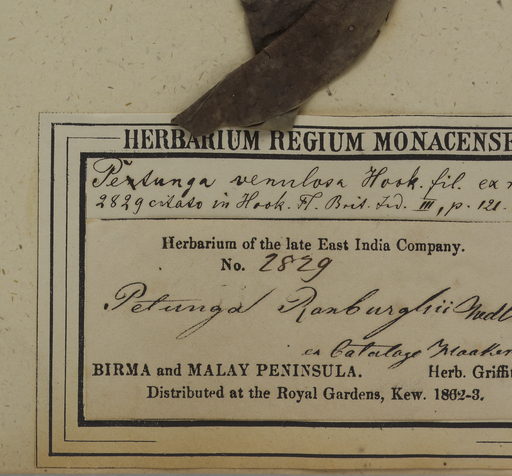 HERBARIUM REGIUM MONACENSE
Petunga venulosa Hook. fil. ex
2829 citato in Hook. Fl. Brit. Ind. III, p. 121.
Herbarium of the late East India Company.
No. 2829
Petunga Roxburghii
ex Cataloge
BIRMA and MALAY PENINSULA. Herb. Griffit
Distributed at the Royal Gardens, Kew. 1862-3.